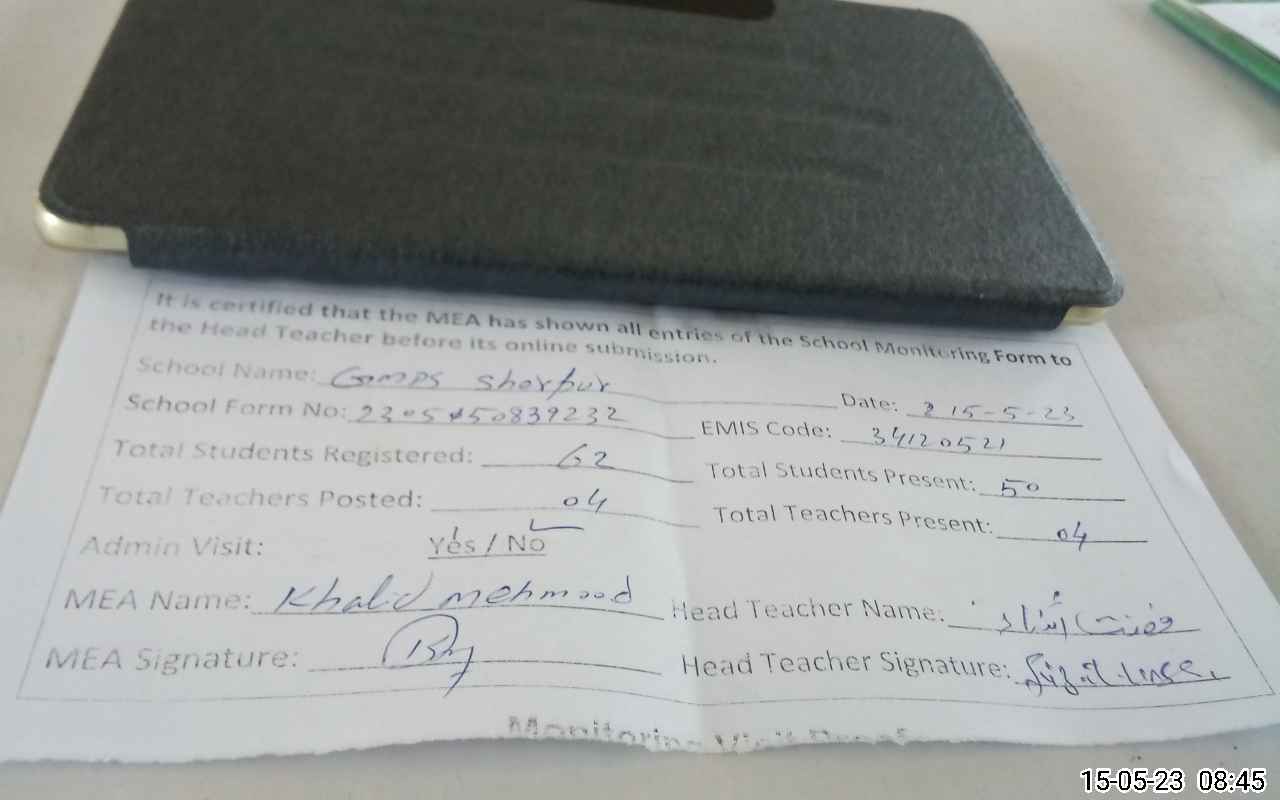 It is certified that the MEA has shown all entries of the School Monitoring Form to
the Head Teacher before its online submission.
School Name: GMPS Sherpur Date: 15-5-23
School Form No: EMIS Code: 34120521
Total Students Registered: 62 Total Students Present: 50
Total Teachers Posted: 04 Total Teachers Present: 04
Admin Visit: Yes / No
MEA Name: Khalid mehmood Head Teacher Name:
MEA Signature: Head Teacher Signature:
Monitoring Visit Proof
15-05-23 08:45